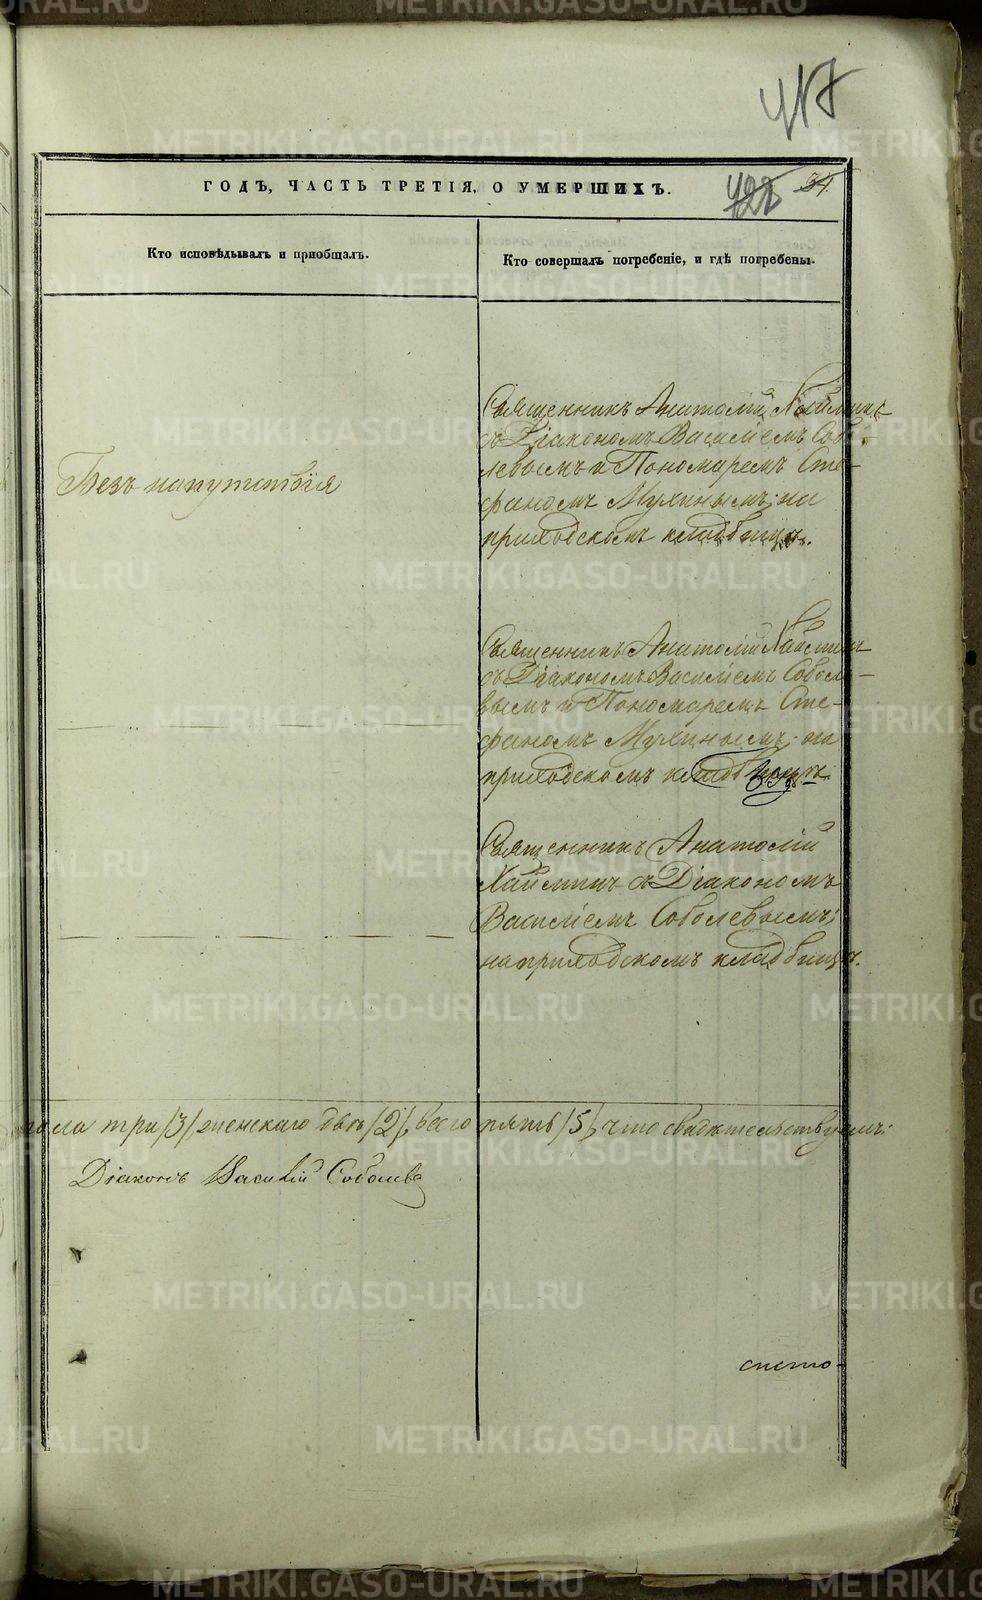 417
ГОДЪ, ЧАСТЬ ТРЕТІЯ, О УМЕРШИХЪ.
428 34
Кто исповѣдывалъ и приобщалъ.
Кто совершалъ погребеніе, и гдѣ погребены.
Безъ напутствія
Священникъ Анатолій
съ Діакономъ Василіемъ Собо-
левымъ и Пономаремъ Сте-
фаномъ Мухинымъ; на
приходскомъ кладбищѣ.
Священникъ Анатолій
съ Діакономъ Василіемъ Соболе-
вымъ и Пономаремъ Сте-
фаномъ Мухинымъ; на
приходскомъ кладбищѣ.
Священникъ Анатолій
съ Діакономъ
Василіемъ Соболевымъ;
на приходскомъ кладбищѣ.
пола три /3/, женскаго двѣ /2/, всего пять /5/, что свидѣтельствуемъ:
Діаконъ Василій Соболевъ
METRIKI.GASO-URAL.RU